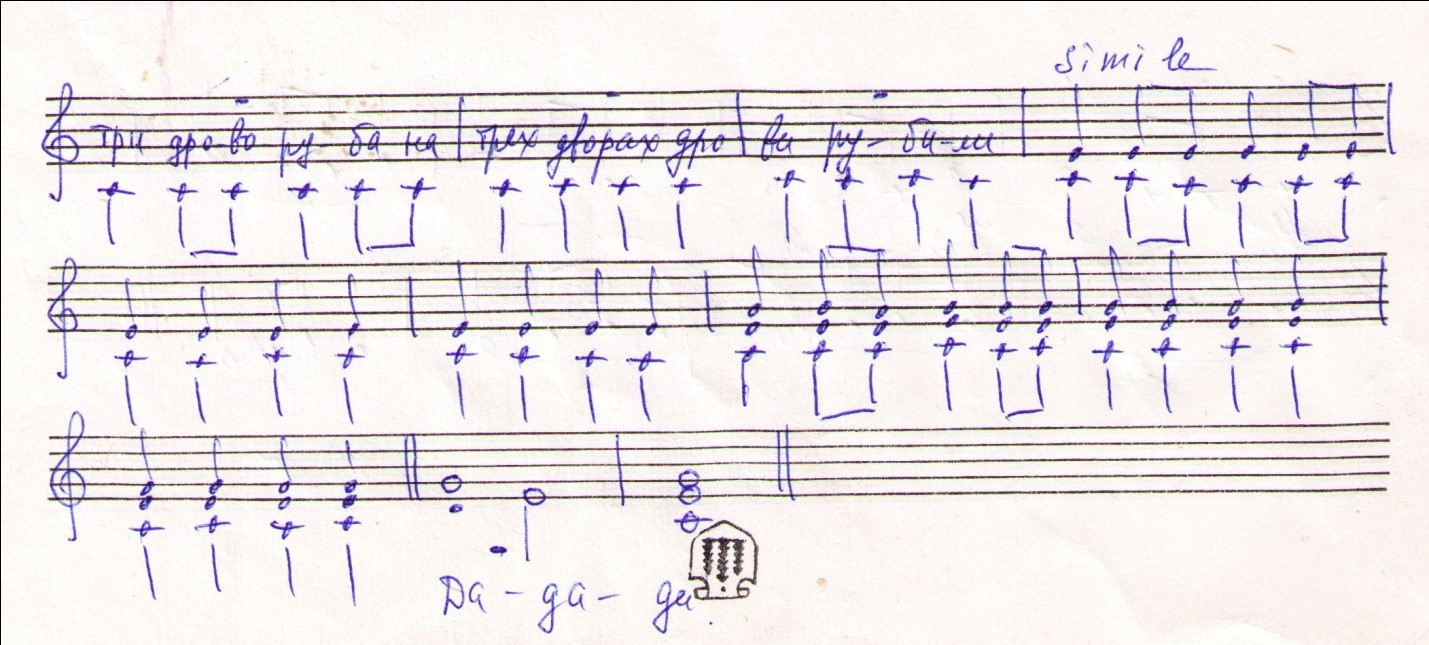 simile
Три дро-во ру-ба на трёх дворах дро ва ру-би-ли
Да-да-да.